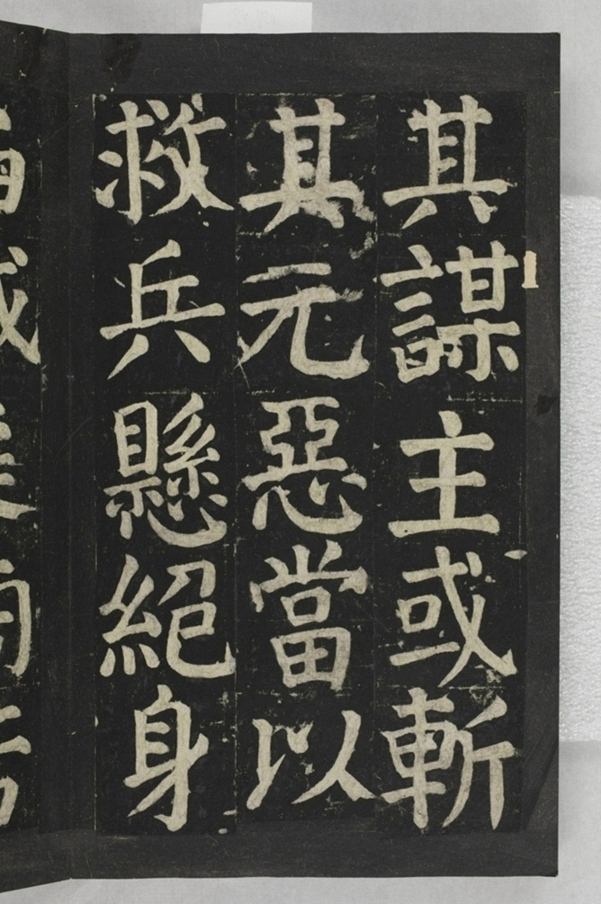 其謀主或斬
其元惡當以
救兵懸絕身